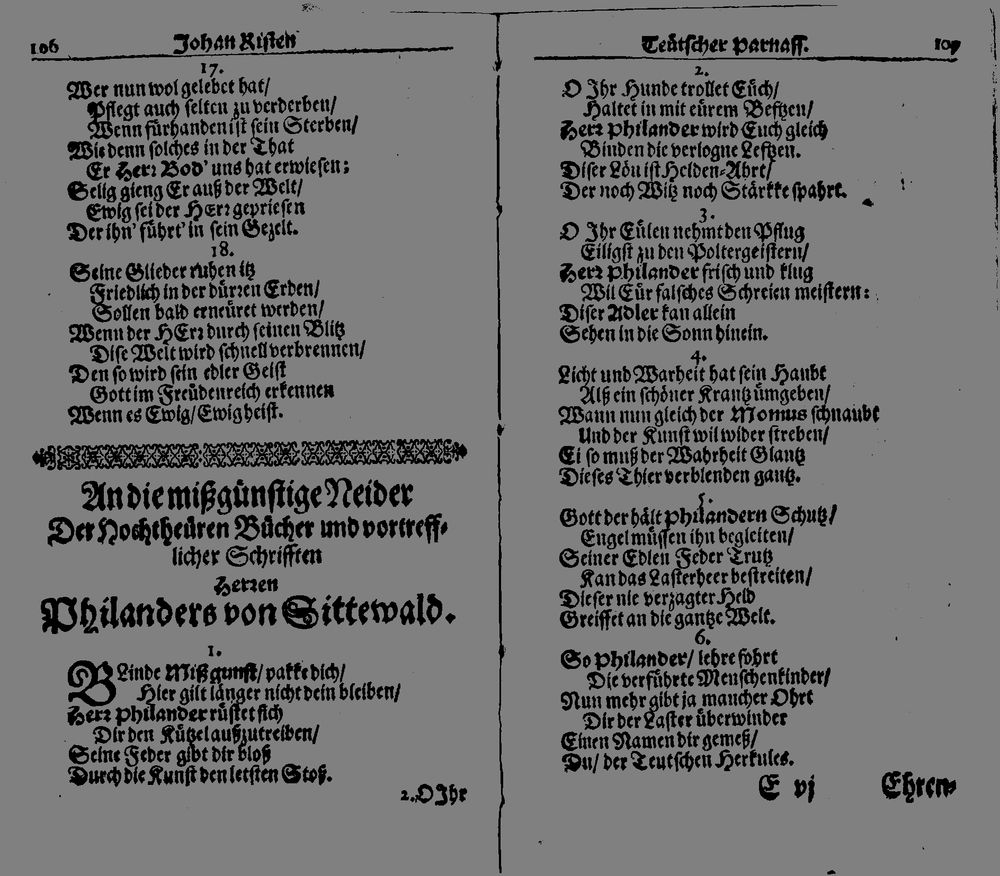 106 Johan Risten
17.
Wer nun wol gelebet hat/
Pflegt auch selten zu verderben/
Wenn fürhanden ist sein Sterben/
Wie denn solches in der That
Er Herr Bod' uns hat erwiesen;
Selig gieng Er auß der Welt/
Ewig sei der HErr gepriesen
Der ihn' führt' in sein Gezelt.
18.
Seine Glieder ruhen itz
Friedlich in der dürren Erden/
Sollen bald erneüret werden/
Wenn der HErr durch seinen Blitz
Dise Welt wird schnell verbrennen/
Den so wird sein edler Geist
Gott im Freüdenreich erkennen
Wenn es Ewig/Ewig heist.
An die mißgünstige Neider
Der Hochtheüren Bücher und vortreff-
licher Schrifften
Herren
Philanders von Sittewald.
1.
BLinde Mißgunst/ pakke dich/
Hier gilt länger nicht dein bleiben/
Herr Philander rüstet sich
Dir den Kützel außzutreiben/
Seine Feder gibt dir bloß
Durch die Kunst den letsten Stoß.
2. O Ihr
Teütscher Parnass. 107
2.
O Ihr Hunde trollet Eüch/
Haltet in mit eürem Beftzen/
Herr Philander wird Euch gleich
Binden die verlogne Leftzen.
Diser Löu ist Helden-Ahrt/
Der noch Witz noch Stärkke spahrt.
3.
O Ihr Eülen nehmt den Pflug
Eiligst zu den Poltergeistern/
Herr Philander frisch und klug
Wil Eür falsches Schreien meistern:
Diser Adler kan allein
Sehen in die Sonn hinein.
4.
Licht und Warheit hat sein Haubt
Alß ein schöner Krantz ümgeben/
Wann nun gleich der Momus schnaubt
Und der Kunst wil wider streben/
Ei so muß der Wahrheit Glantz
Dieses Thier verblenden gantz.
5.
Gott der hält Philandern Schutz/
Engel müssen ihn begleiten/
Seiner Edlen Feder Trutz
Kan das Lasterheer bestreiten/
Dieser nie verzagter Held
Greiffet an die gantze Welt.
6.
So Philander/ lehre fohrt
Die verführte Menschenkinder/
Nun mehr gibt ja mancher Ohrt
Dir der Laster überwinder
Einen Namen dir gemeß/
Du/ der Teutschen Herkules.
E vj Ehren-